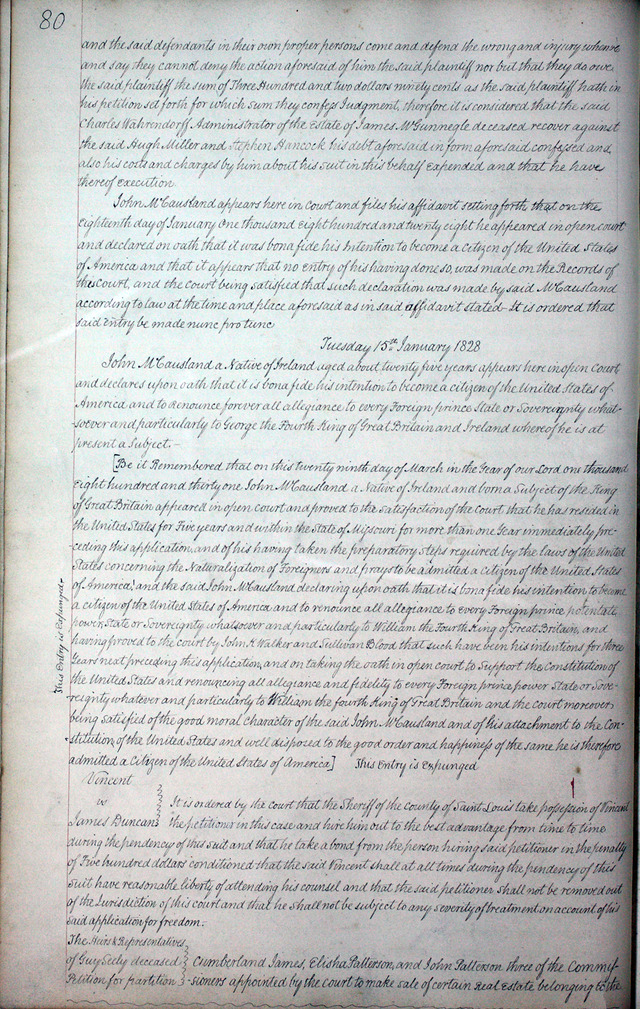 80
and the said defendants in their own proper persons come and defend the wrong and injury when &c
and say they cannot deny the action aforesaid of him the said plaintiff nor but that they do owe
the said plaintiff the sum of Three Hundred and two dollars ninety cents as the said plaintiff hath in
his petition set forth for which sum they confess Judgment, therefore it is considered that the said
Charles Wahrendorff Administrator of the Estate of James McGunnegle deceased recover against
the said Hugh Miller and Stephen Hancock his debt aforesaid in form aforesaid confessed and
also his costs and charges by him about his suit in this behalf expended and that he have
thereof execution
John McCausland appears here in Court and files his affidavit setting forth that on the
eighteenth day of January One thousand Eight hundred and twenty eight he appeared in open court
and declared on oath that it was bona fide his Intention to become a citizen of the United States
of America and that it appears that no entry of his having done so, was made on the Records of
this Court, and the Court being satisfied that such declaration was made by said McCausland
according to law at the time and place aforesaid as in said affidavit stated - It is ordered that
said Entry be made nunc pro tunc
Tuesday 15th January 1828
John McCausland a Native of Ireland aged about twenty five years appears here in open Court
and declares upon oath that it is bona fide his intention to become a citizen of the United States of
America and to Renounce forever all allegiance to every Foreign prince State or Sovereignty what-
soever and particularly to George the Fourth King of Great Britain and Ireland whereof he is at
present a Subject. -
[Be it Remembered that on this twenty ninth day of March in the Year of our Lord one thousand
Eight hundred and thirty one John McCausland a Native of Ireland and born a Subject of the King
of Great Britain appeared in open court and proved to the satisfaction of the Court that he has resided in
the United States for Five years and within the State of Missouri for more than one Year immediately pre-
ceding this application, and of his having taken the preparatory steps required by the laws of the United
States concerning the Naturalization of Foreigners and prays to be admitted a citizen of the United States
of America, and the said John McCausland declaring upon oath that it is bona fide his intention to become
a citizen of the United States of America and to renounce all allegiance to every Foreign prince potentate
power, State or Sovereignty whatsoever and particularly to William the Fourth King of Great Britain, and
having proved to the court by John K Walker and Sullivan Blood that such have been his intentions for three
Years next preceding this application, and on taking the oath in open court to Support the Constitution of
the United States and renouncing all allegiance and fidelity to every Foreign prince power State or Sove-
reignty whatever and particularly to William the fourth King of Great Britain and the court moreover
being satisfied of the good moral character of the said John McCausland and of his attachment to the Con-
stitution of the United States and well disposed to the good order and happiness of the same he is therefore
admitted a Citizen of the United States of America] This Entry is Expunged
This Entry is Expunged
Vincent
vs It is ordered by the Court that the Sheriff of the County of Saint Louis take possession of Vincent
James Duncan the petitioner in this case and hire him out to the best advantage from time to time
during the pendency of this suit and that he take a bond from the person hiring said petitioner in the penalty
of Five hundred dollars conditioned that the said Vincent shall at all times during the pendency of this
suit have reasonable liberty of attending his counsel and that the said petitioner shall not be removed out
of the Jurisdiction of this court and that he shall not be subject to any severity of treatment on account of his
said application for freedom.
The Heirs & Representatives
of Guy Seely deceased Cumberland James, Elisha Patterson, and John Patterson three of the Commis-
Petition for partition sioners appointed by the Court to make sale of certain Real Estate belonging to the